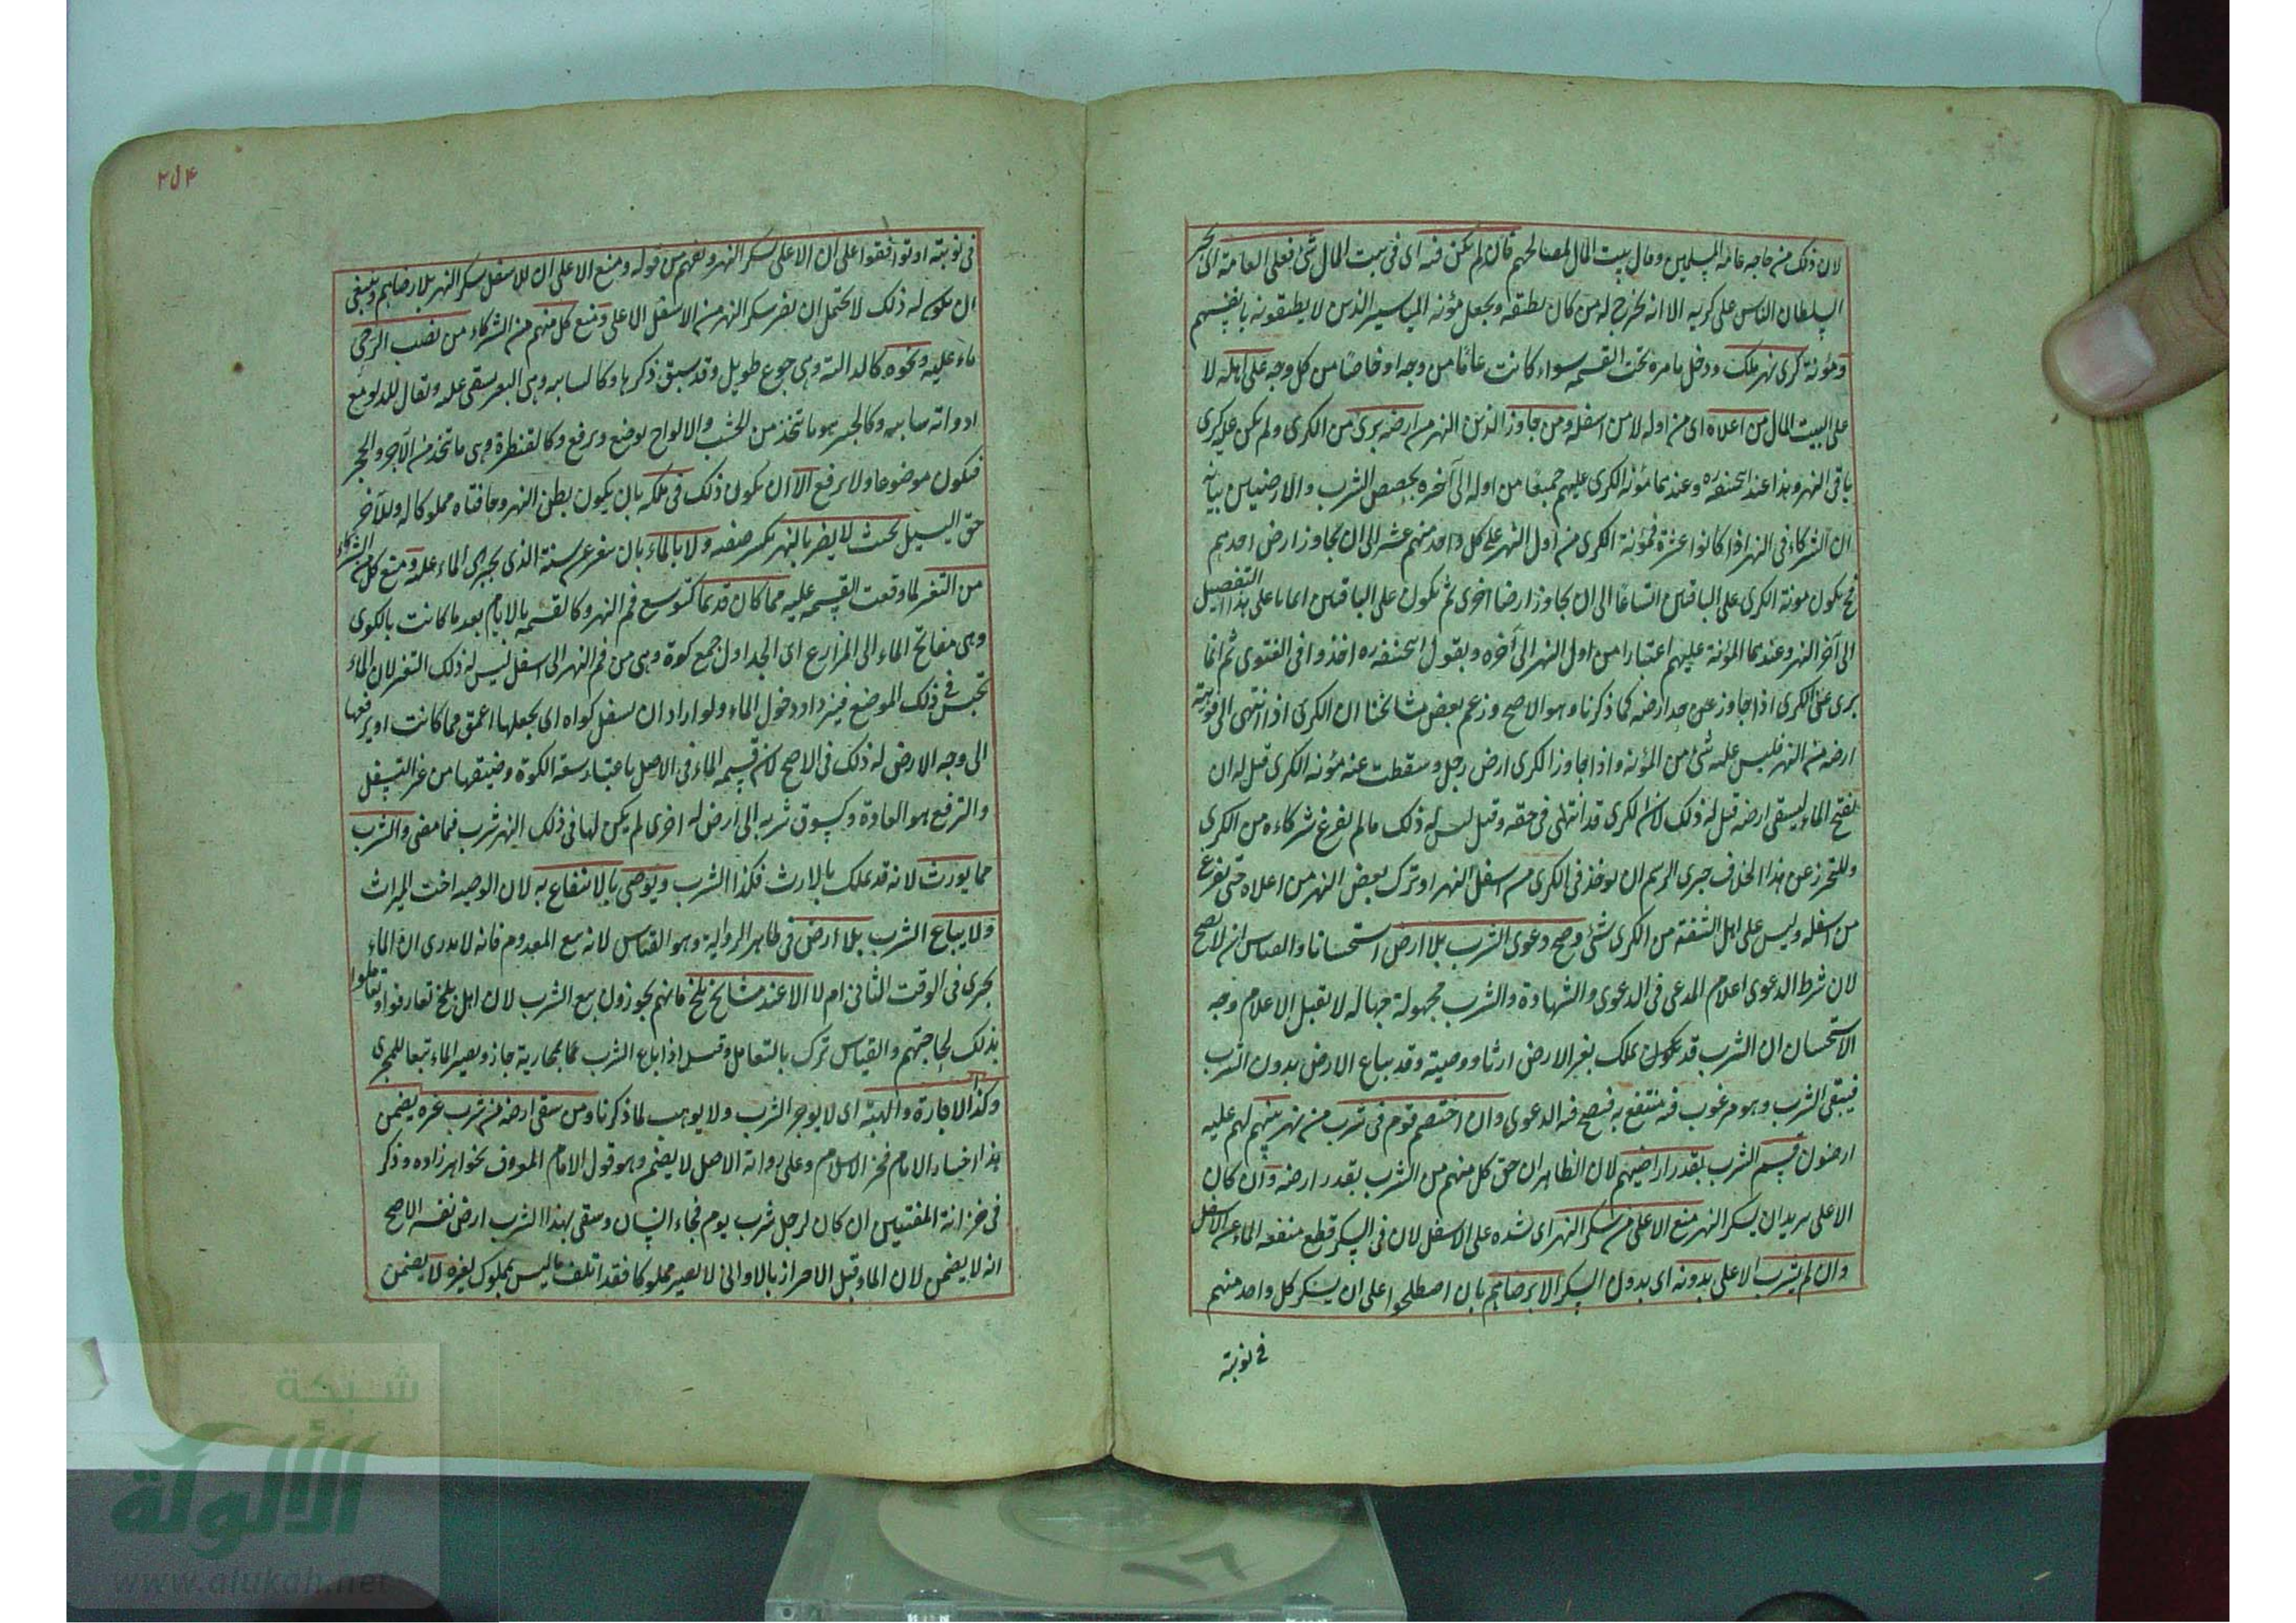 لان ذلك من حاجة عامة المسلمين ومال بيت المال لمصالحهم فان لم يكن فيه اى فى بيت المال شئ فعلى العامة اى يجبر
السلطان الناس على كريه الا انه يخرج له من كان يطيقه ويجعل مؤنة المياسير الذين لا يطيقونه بانفسهم
ومؤنة كرى نهر ملك ودخل ماءه تحت القسمة سواء كانت عاما من وجه او خاصا من كل وجه على اهله لا
على البيت المال من اعلاه اى من اوله لا من اسفله ومن جاوز الذين النهر من ارضه برئ من الكرى ولم يكن عليه كرى
باقى النهر وهذا عند ابحنيفه ره وعندهما مؤنة الكرى عليهم جميعا من اوله الى آخره بحصص الشرب والارضين بيانه
ان الشركاء فى النهر اذا كانوا عشرة فمؤنة الكرى من اول النهر على كل واحد منهم عشر الى ان يجاوز ارض احدهم
فح يكون مونة الكرى على الباقين اتساعا الى ان يجاوز ارضا اخرى ثم يكون على الباقين اثمانا على هذا التفصيل
الى آخر النهر وعندهما المؤنة عليهم اعشارا من اول النهر الى آخره وبقول ابحنيفه ره اخذوا فى الفتوى ثم انما
برئ عن الكرى اذا جاوز عن حد ارضه كما ذكرنا وهو الاصح وزعم بعض مشائخنا ان الكرى اذا انتهى الى فوهة
ارضه من النهر فليس عليه شئ من المؤنة واذا جاوز الكرى ارض رجل وسقطت عنه مؤنة الكرى قيل له ان
يفتح الماء ليسقى ارضه قيل له ذلك لان الكرى قد انتهى فى حقه وقيل ليس له ذلك ما لم يفرغ شركاءه من الكرى
وللتحرز عن هذا الخلاف جرى الرسم ان يوخذ فى الكرى من اسفل النهر او ترك بعض النهر من اعلاه حتى يفرغ
من اسفله وليس على اهل الشفة من الكرى شئ وصح دعوى الشرب بلا ارض استحسانا والقياس ان لا يصح
لان شرط الدعوى اعلام المدعى فى الدعوى والشهادة والشرب مجهولة جهالة لا يقبل الاعلام وجه
الاستحسان ان الشرب قد يكون يملك بغير الارض ارثا ووصية وقد يباع الارض بدون الشرب
فيبقى الشرب وهو مرغوب فيه منتفع به فيصح فيه الدعوى وان اختصم قوم فى شرب من نهر بينهم لهم عليه
ارضون قسم الشرب بقدر اراضيهم لان الظاهر ان حق كل منهم من الشرب بقدر ارضه وان كان
الاعلى يريد ان يسكر النهر منع الاعلى من سكر النهر اى شده على الاسفل لان فى السكر قطع منفعة الماء عن الاسفل
وان لم يشرب الاعلى بدونه اى بدون السكر الا برضاهم بان اصطلحوا على ان يسكر كل واحد منهم
فى نوبته
فى نوبته او توافقوا على ان الاعلى يسكر النهر ويفهم من قوله ومنع الاعلى ان للاسفل سكر النهر بلا رضاهم وينبغى
ان يكون له ذلك لا يحتمل ان يضر سكر النهر من الاسفل الاعلى ومنع كل منهم من الشركاء من نصب الرحى
ماء عليه ونحوه كالدالية وهى جذوع طويل وقد سبق ذكرها وكالسانية وهى البعير يسقى عليه ويقال للدلو مع
ادواته سانية وكالجسر هو ما يتخذ من الخشب والالواح يوضع ويرفع وكالقنطرة وهى ما يتخذ من الآجر والحجر
فيكون موضوعا ولا يرفع الا ان يكون ذلك فى ملكه بان يكون بطن النهر وحافتاه مملوكا له وللآخر
حق المسيل بحيث لا يضر بالنهر بكسر ضفته ولا بالماء بان يتغير عن سننه الذى يجرى الماء عليه ومنع كل من الشركاء
من التغير لما وقعت القسمة عليه مما كان قديما كتوسيع فم النهر وكالقسمة بالايام بعد ما كانت بالكوى
وهى مفاتح الماء الى المزارع اى الجداول جمع كوة وهى من فم النهر الى اسفل ليس له ذلك التغير لان الماء
تحبس فى ذلك الموضع فيزداد دخول الماء ولو اراد ان يسفل كواه اى يجعلها اعمق مما كانت او يرفعها
الى وجه الارض له ذلك فى الاصح لان قسمة الماء فى الاصل باعتبار سعة الكوة وضيقها من غير التسفل
والترفع هو العادة وكسوق شربه الى ارض له اخرى لم يكن لها فى ذلك النهر شرب فيما مضى والشرب
مما يورث لانه قد يملك بالارث فكذا الشرب ويوصى بالانتفاع به لان الوصية اخت الميراث
ولا يباع الشرب بلا ارض فى ظاهر الرواية وهو القياس لانه بيع المعدوم فانه لا يدرى ان الماء
يجرى فى الوقت الثانى ام لا الا عند مشائخ بلخ فانهم يجوزون بيع الشرب لان اهل بلخ تعارفوا وتعاملوا
بذلك لحاجتهم والقياس ترك بالتعامل وقيل اذا باع الشرب مما بمجارية جاز ويصير الماء تبعا للمجرى
وكذا الاجارة والهبة اى لا يوجر الشرب ولا يوهب لما ذكرنا ومن سقى ارضه من شرب غيره يضمن
هذا اختيار الامام فخر الاسلام وعلى رواية الاصل لا يضمن وهو قول الامام المعروف بخواهر زاده وذكر
فى خزانة المفتيين ان كان لرجل شرب يوم فجاء انسان وسقى بهذا الشرب ارض نفسه الاصح
انه لا يضمن لان الماء قبل الاحراز بالاوانى لا يصير مملوكا فقد اتلف ما ليس بمملوك لغيره لا يضمن
شبكة
الألوكة
www.alukah.net